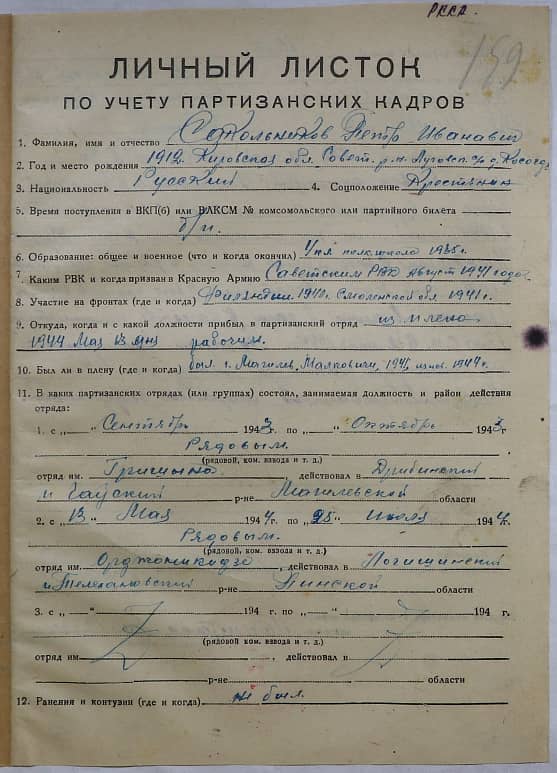 РККА.
159
ЛИЧНЫЙ ЛИСТОК
ПО УЧЕТУ ПАРТИЗАНСКИХ КАДРОВ
1. Фамилия, имя и отчество Сокольников Петр Иванавич
2. Год и место рождения 1912 Кировская обл. Совет. р-н
3. Национальность Русский 4. Соцположение Крестянин
5. Время поступления в ВКП(б) или ВЛКСМ № комсомольского или партийного билета
б/п.
6. Образование: общее и военное (что и когда окончил) 1935г.
7. Каким РВК и когда призван в Красную Армию Советским РВК Август 1941 года
8. Участие на фронтах (где и когда) 1940г. Смоленской обл 1941г.
9. Откуда, когда и с какой должности прибыл в партизанский отряд из плена
1944 Мая 13 дня рабочим.
10. Был ли в плену (где и когда) был г. Магилев, 1941, 1944г.
11. В каких партизанских отрядах (или группах) состоял, занимаемая должность и район действия
отряда:
1. с „—“ Сентябрь 1943 г. по „—“ Октябрь 1943 г
Рядовым.
(рядовой, ком. взвода и т. д.)
отряд им. Гришина действовал в Дрибинский
и р-не Магилевской области
2. с „13“ Мая 1944 г. по „25“ Июля 1944 г.
Рядовым.
(рядовой, ком. взвода и т. д.)
отряд им. Орджоникидзе, действовал в Логишинский
и Телехановский р-не Пинской области
3. с „—“ 194 г. по „—“ 194 г.
(рядовой ком. взвода и т. д.)
отряд им., действовал в
р-не области
12. Ранения и контузии (где и когда) не был.